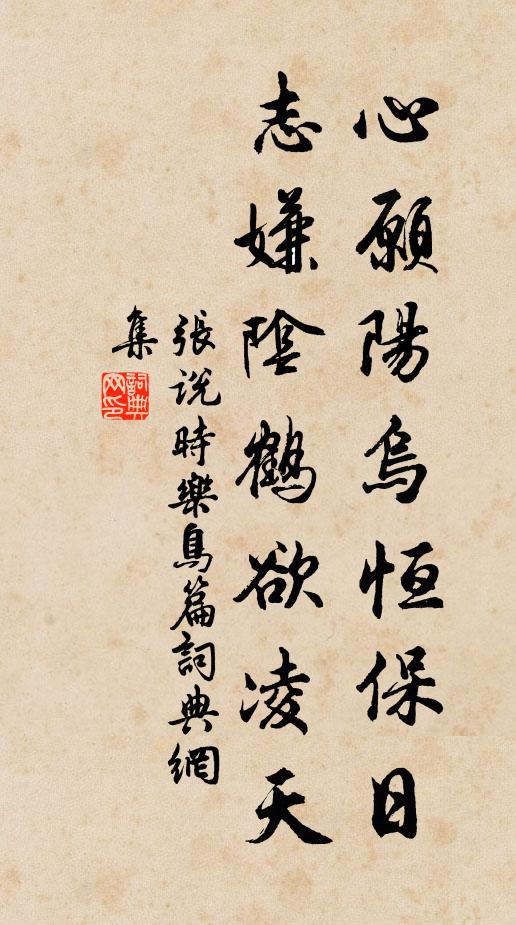 心願陽烏恒保日
志嫌陰鶴欲凌天
張說時樂鳥篇詞典網
集
詞典
网印